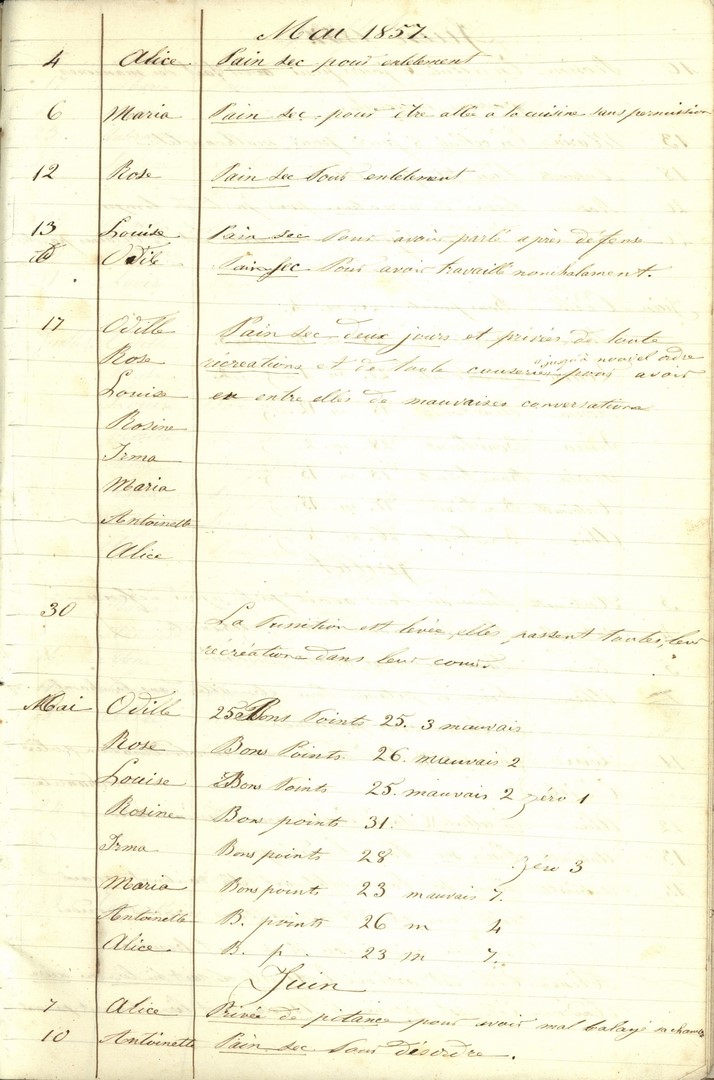 Mai 1857.
4 Alice. Pain sec pour entêtement
6 Maria Pain sec. pour être allée à la cuisine sans permission
12 Rose Pain sec Pour entêtement
13 Louise Pain sec Pour avoir parlé après défense
Odile Pain sec Pour avoir travaillé nonchalament.
17 Odille Pain sec deux jours et privées de toute
Rose récréations et de toute causeries jusqu'à nouvel ordre pour avoir
Louise eu entre elles de mauvaises conversations
Rosine
Irma
Maria
Antoinette
Alice
30 La Punition est levée, elles passent toutes, leur
récréations dans leur cour.
Mai Odille 25 Bons Points 25. 3 mauvais
Rose Bons Points. 26. mauvais 2
Louise Bons Points 25. mauvais 2 zéro 1
Rosine Bons points 31.
Irma Bons points 28 zéro 3
Maria Bons points 23 mauvais 7.
Antoinette B. points 26 m 4
Alice B. p. 23 m 7.
Juin
7 Alice Privée de pitance pour avoir mal balayé sa chambre
10 Antoinette Pain sec Pour désordre.